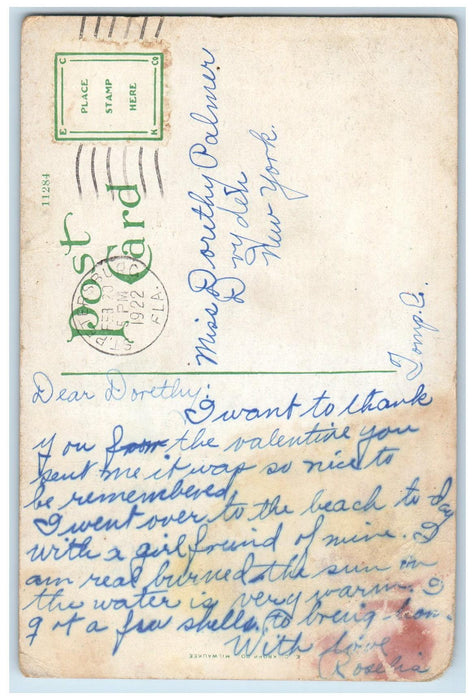 C Co
PLACE
STAMP
HERE
E K
11284
Post
Card
ST. PETERSBURG
FEB 20
5 PM
1922
FLA.
Miss Dorethy Palmer
Dryden
New York.
Tomp. Co.
Dear Dorethy:
I want to thank
you from the valentine you
sent me it was so nice to
be remembered
I went over to the beach to day
with a girl freind of mine. I
am real burned, the sun on
the water is very warm. I
got a few shells. to bring hom.
With love
Rosehia
MILWAUKEE